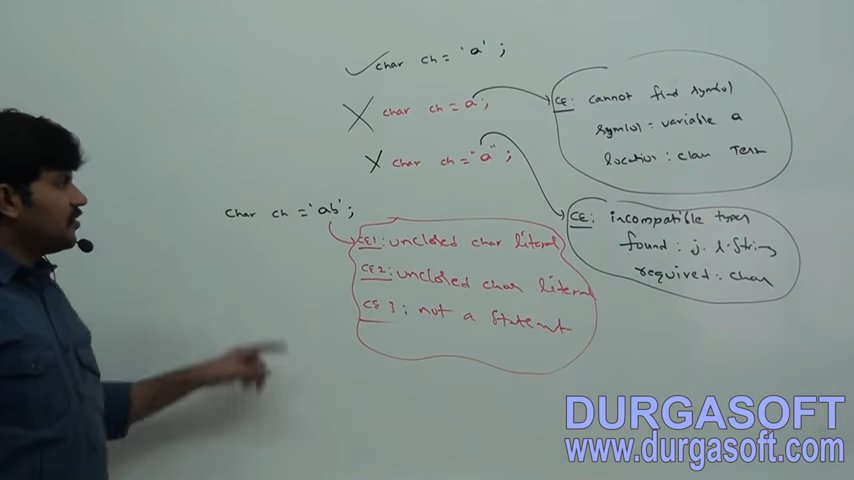 char ch = 'a' ;
char ch = a ;
char ch = "a" ;
char ch = 'ab' ;
CE: cannot find symbol
symbol : variable a
location : class Test
CE: incompatible types
found : j. l. String
required : char
CE1: unclosed char literal
CE2: unclosed char literal
CE 3 : not a statement
DURGASOFT
www.durgasoft.com